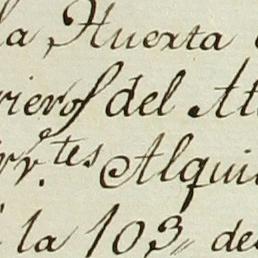 la Huerta
del At
Alqui
la 103, de